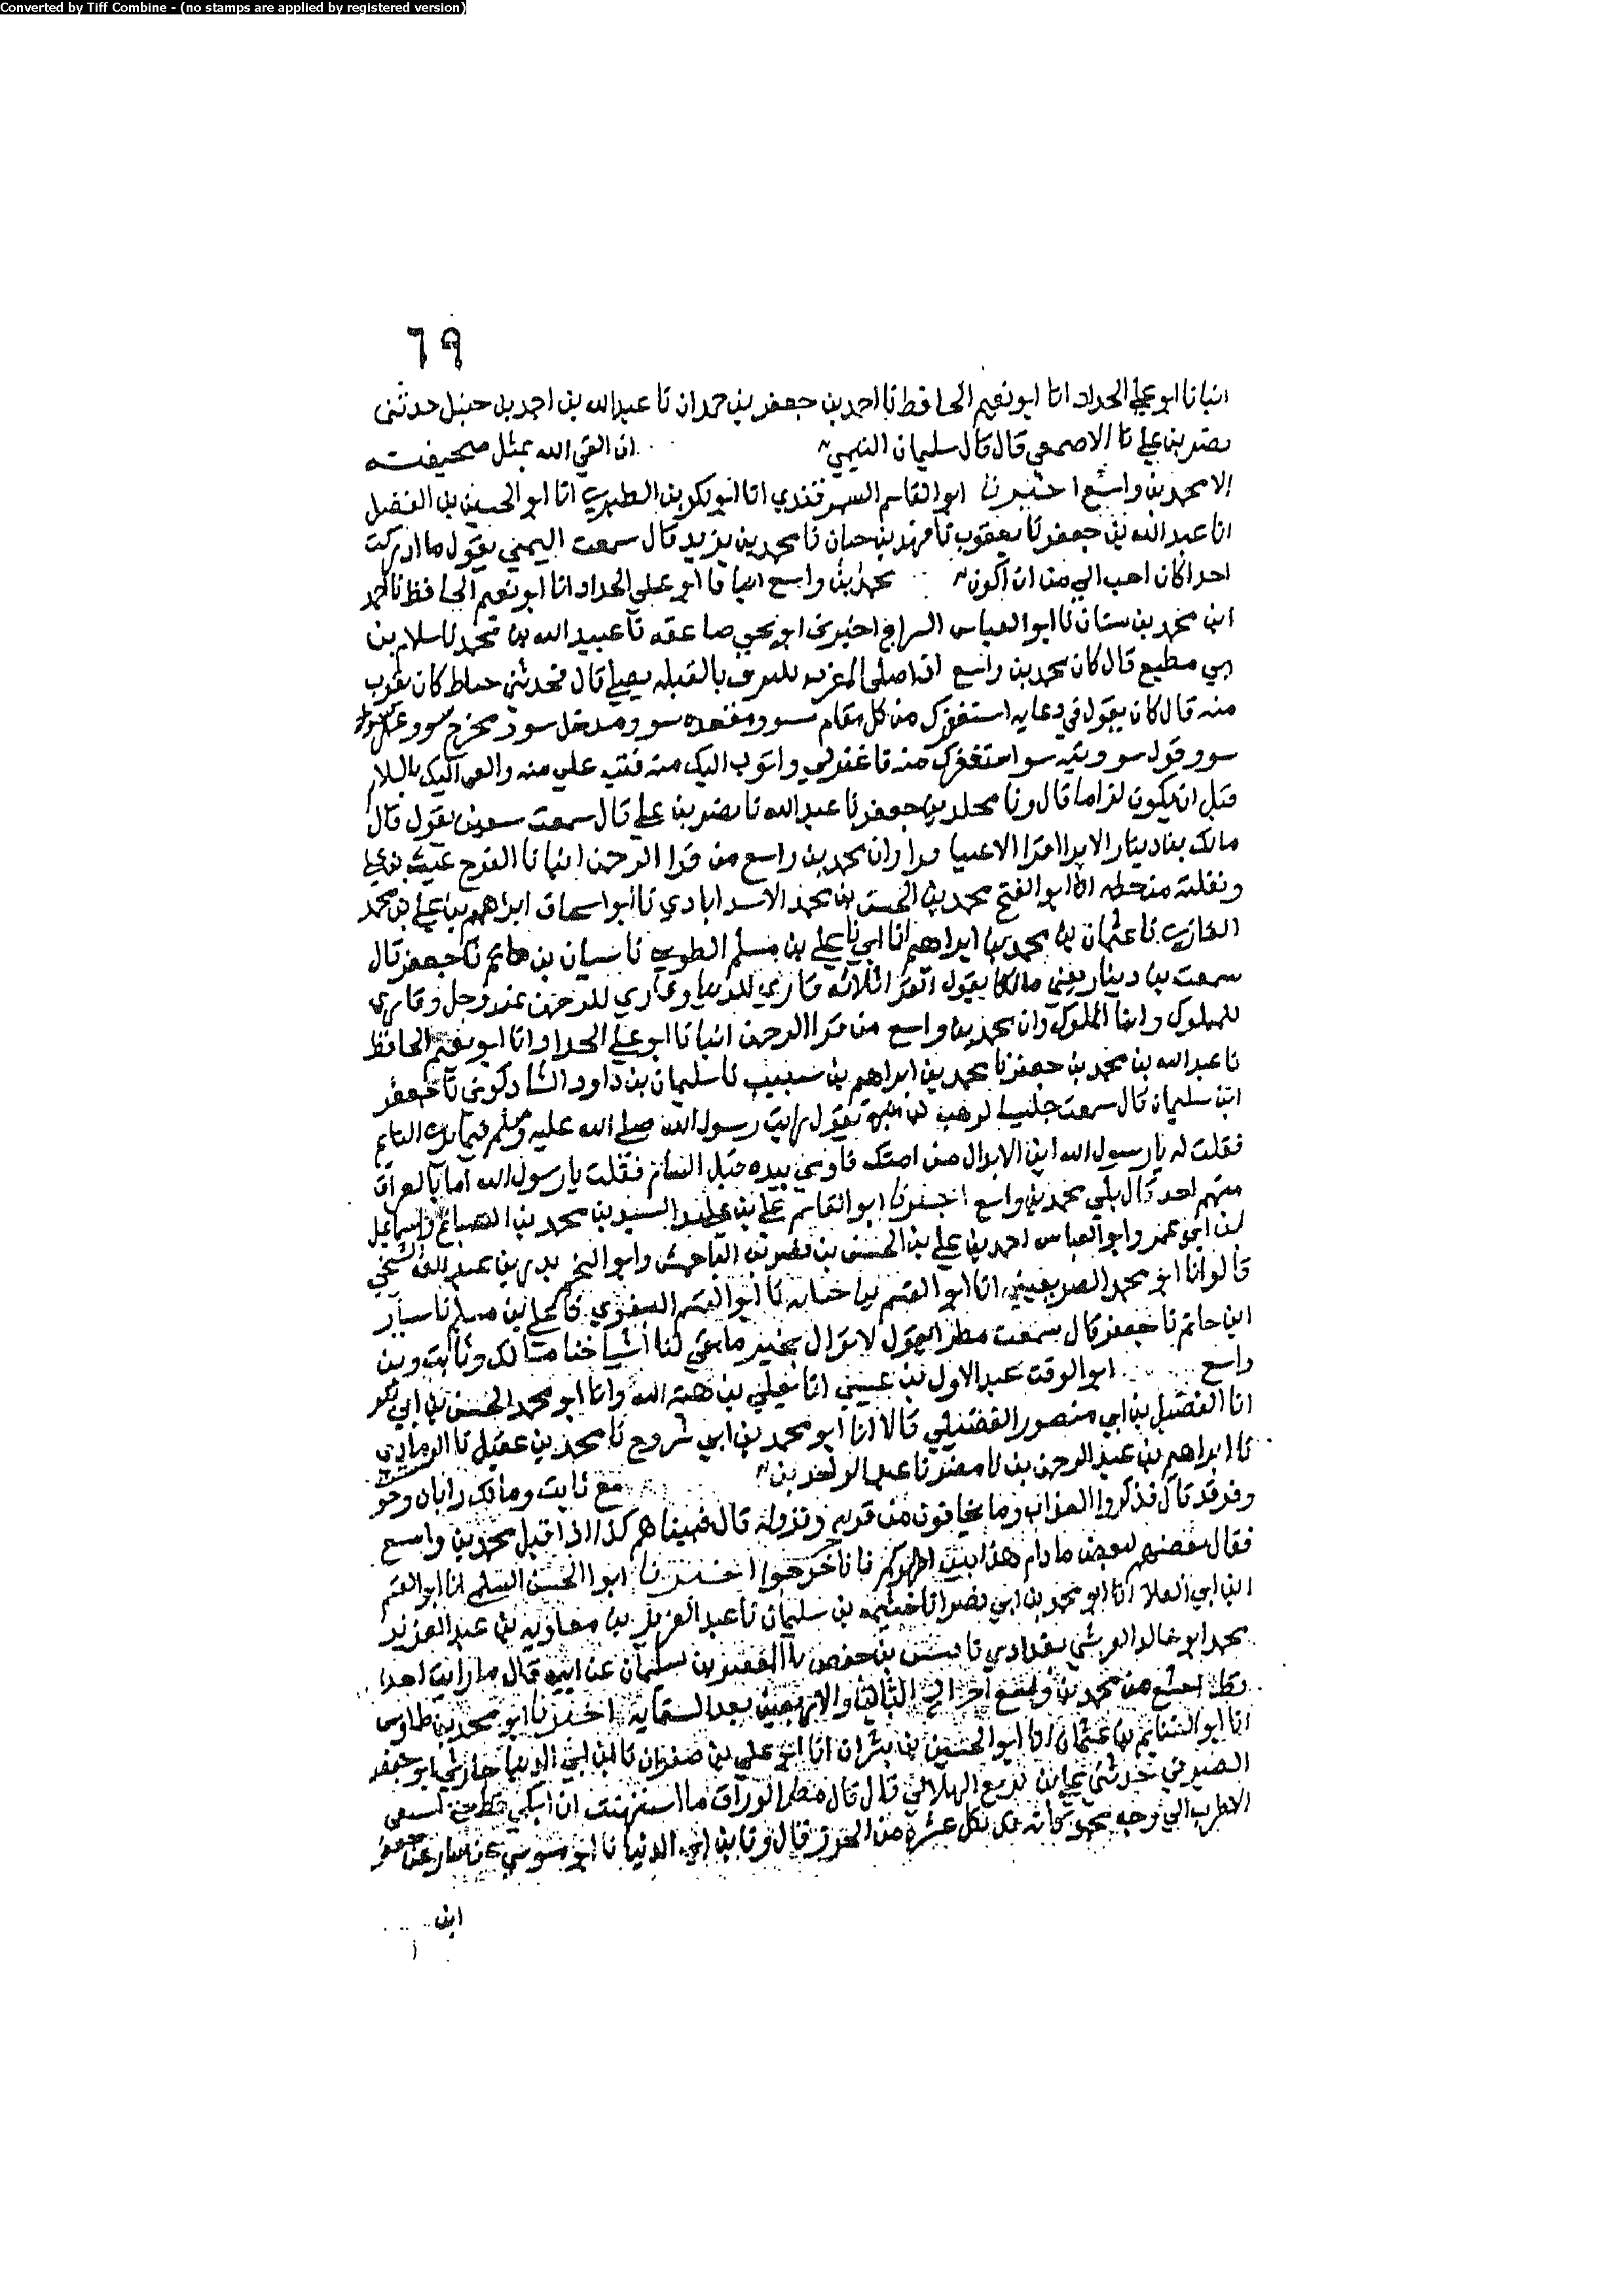 Converted by Tiff Combine - (no stamps are applied by registered version)
٦٩
انبانا ابو علي الحداد انا ابو نعيم الحافظ نا احمد بن جعفر بن حمدان نا عبدالله بن احمد بن حنبل حدثنى
نصر بن علي نا الاصمعي قال قال سليمان التيمي ان القى الله بمثل صحيفته
الا محمد بن واسع اخبرنا ابو القاسم السمرقندي انا ابو بكر بن الطبري انا ابو الحسين بن الفضل
انا عبد الله بن جعفر نا يعقوب نا مهد بن حيان نا محمد بن يزيد قال سمعت اليمني يقول ما ادركت
احدا كان احب الي من ان اكون محمد بن واسع انبانا ابو علي الحداد انا ابو نعيم الحافظ نا احمد
ابن محمد بن سنان نا ابو العباس السراج اخبرنى ابو يحيى صاعقه نا عبيد الله بن محمد نا سلام بن
ابي مطيع قال كان محمد بن واسع اذا صلى المغرب يلزق بالقبله يصلي قال فحدثني خياط كان بقرب
منه قال كان يقول في دعايه استغفرك من كل مقام سوو مقعده سوو مدخل سوو مخرج سوو عمل
سوو قول سوو نيه سو استغفرك منه فاغفرلي واتوب اليك منه فتب علي منه والقى اليك بالسلام
قبل ان يكون لزاما قال ونا مخلد بن جعفر نا عبدالله نا نصر بن علي قال سمعت سفين يقول قال
مالك بن دينار الامرا اقرا الاغنيا وان محمد بن واسع من قرا الرحمن انبانا الفرج غيث بن علي
ونقلته من خطه انا ابو الفتح محمد بن الحسن بن محمد الاسدابادي نا ابو اسحاق ابراهيم بن علي بن محمد
الغازي نا عثمان بن محمد بن ابراهيم انا ابي نا علي بن مسلم الطوسي نا سيار بن حاتم نا جعفر قال
سمعت بن دينار يعني مالكا يقول القرا ثلاثه قاري للدنيا وقاري للرحمن عز وجل وقاري
للملوك وابنا الملوك وان محمد بن واسع من قرا الرحمن انبانا ابو علي الحداد انا ابو نعيم الحافظ
نا عبدالله بن محمد بن جعفر نا محمد بن ابراهيم بن شبيب نا سليمان بن داود الشاذكوني نا جعفر
ابن سليمان قال سمعت جليسا لوهب بن منبه يقول رايت رسول الله صلى الله عليه وسلم فيما يرى النايم
فقلت له يا رسول الله اين الابدال من امتك فاومى بيده قبل الشام فقلت يا رسول الله اما بالعراق
منهم احد قال بلى محمد بن واسع اخبرنا ابو القاسم علي بن عبد السيد بن محمد بن الصباغ واسماعيل
بن ابي عمر وابو العباس احمد بن علي بن الحسن بن نصر بن الباحمشي وابو النجم بدر بن عبد الله الشيخي
قالوا انا ابو محمد الصريفيني انا ابو القسم بن حبابه نا ابو القسم البغوي نا علي بن مسلم نا سيار
ابن حاتم نا جعفر قال سمعت مطرا يقول لا نزال بخير ما بقي لنا اشياخنا مالك وثابت وبن
واسع ابو الوقت عبد الاول بن عيسى انا يعلى بن هبة الله وانا ابو محمد الحسن بن ابي بكر
انا الفضيل بن ابي منصور الفضيلي قالا انا ابو محمد بن ابي شريح نا محمد بن عقيل نا الرمادي
نا ابراهيم بن عبد الرحمن بن نا معمر نا عبد الواحد بن مع ثابت ومالك وابان وحوشب
وفرقد قال فذكروا العذاب وما يخافون من قربه ونزوله قال فبينا هم كذا اذا اقبل محمد بن واسع
فقال بعضهم لبعض ما دام هذا بين اظهركم فانا نرجوا اخبرنا ابو الحسن السلمي انا ابو القسم
ابن ابي العلا انا ابو محمد بن ابي نصر انا خيثمه بن سليمان نا عبد العزيز بن معاويه بن عبد العزيز
محمد ابو خالد القرشي بغدادي نا حفص نا المعتمر بن سليمان عن ابيه قال ما رايت احدا
قط اخشع من محمد بن واسع اخر الثالث والاربعين بعد الستمايه اخبرنا ابو محمد بن طاوس
انا ابو الغنايم بن عثمان انا ابو الحسين بن بشران انا ابو علي بن صفوان نا ابن ابي الدنيا حدثني ابو جعفر
الصيرفي حدثني علي بن بزيع الهلالي قال قال مطر الوراق ما اشتهيت ان ابكي قط حتى اشتفى
الا نظرت الى وجه محمد كانه ثكل عشره من الحزن قال ونا بن ابي الدنيا نا ابو موسى نا سيار عن جعفر
ابن